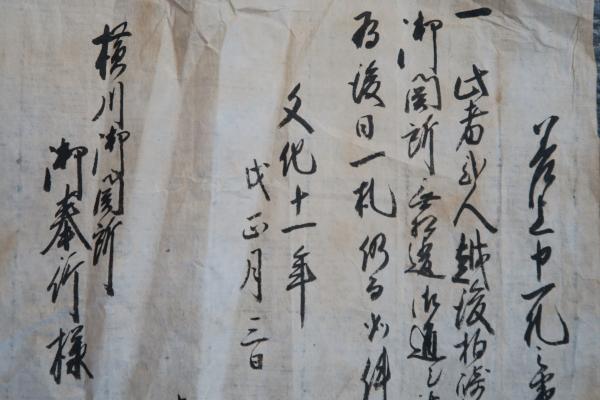 差上申一札之事
一 此者弐人越後柏崎
御関所無相違御通之
為後日一札仍而如件
文化十一年
戌正月二日
横川御関所
御奉行様